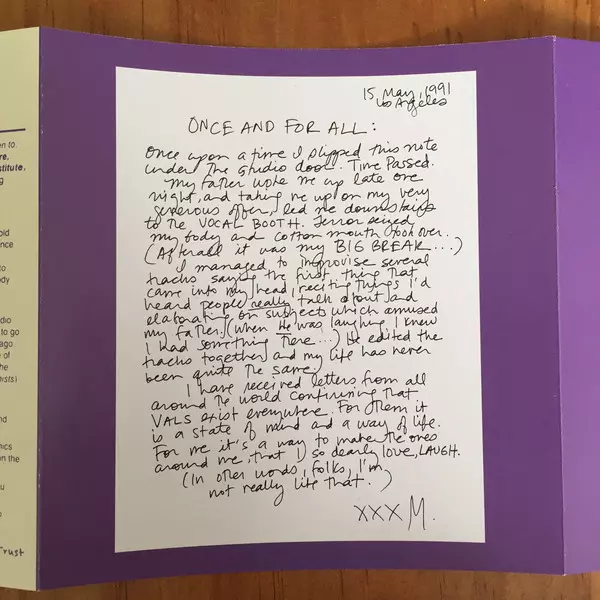 15 May, 1991
Los Angeles
ONCE AND FOR ALL:
Once upon a time I slipped this note
under the studio door. Time Passed.
My father woke me up late one
night, and taking me up on my very
generous offer, led me downstairs
to the VOCAL BOOTH. Terror seized
my body and cotton mouth took over.
(Afterall it was my BIG BREAK...)
I managed to improvise several
tracks saying the first thing that
came into my head, reciting things I'd
heard people really talk about and
elaborating on subjects which amused
my father. (When He was laughing I knew
I had something there...) He edited the
tracks together and my life has never
been quite the same.
I have received letters from all
around the world confirming that
VALS exist everywhere. For them it
is a state of mind and a way of life.
For me it's a way to make the ones
around me, that I so dearly love, LAUGH.
(In other words, folks, I'm
not really like that.)
XXX M.
en to
re,
stitute.
g
old
nce
to
dy
dio
to go
ago
of
he
ists)
nd
nics
on the
u
Trust